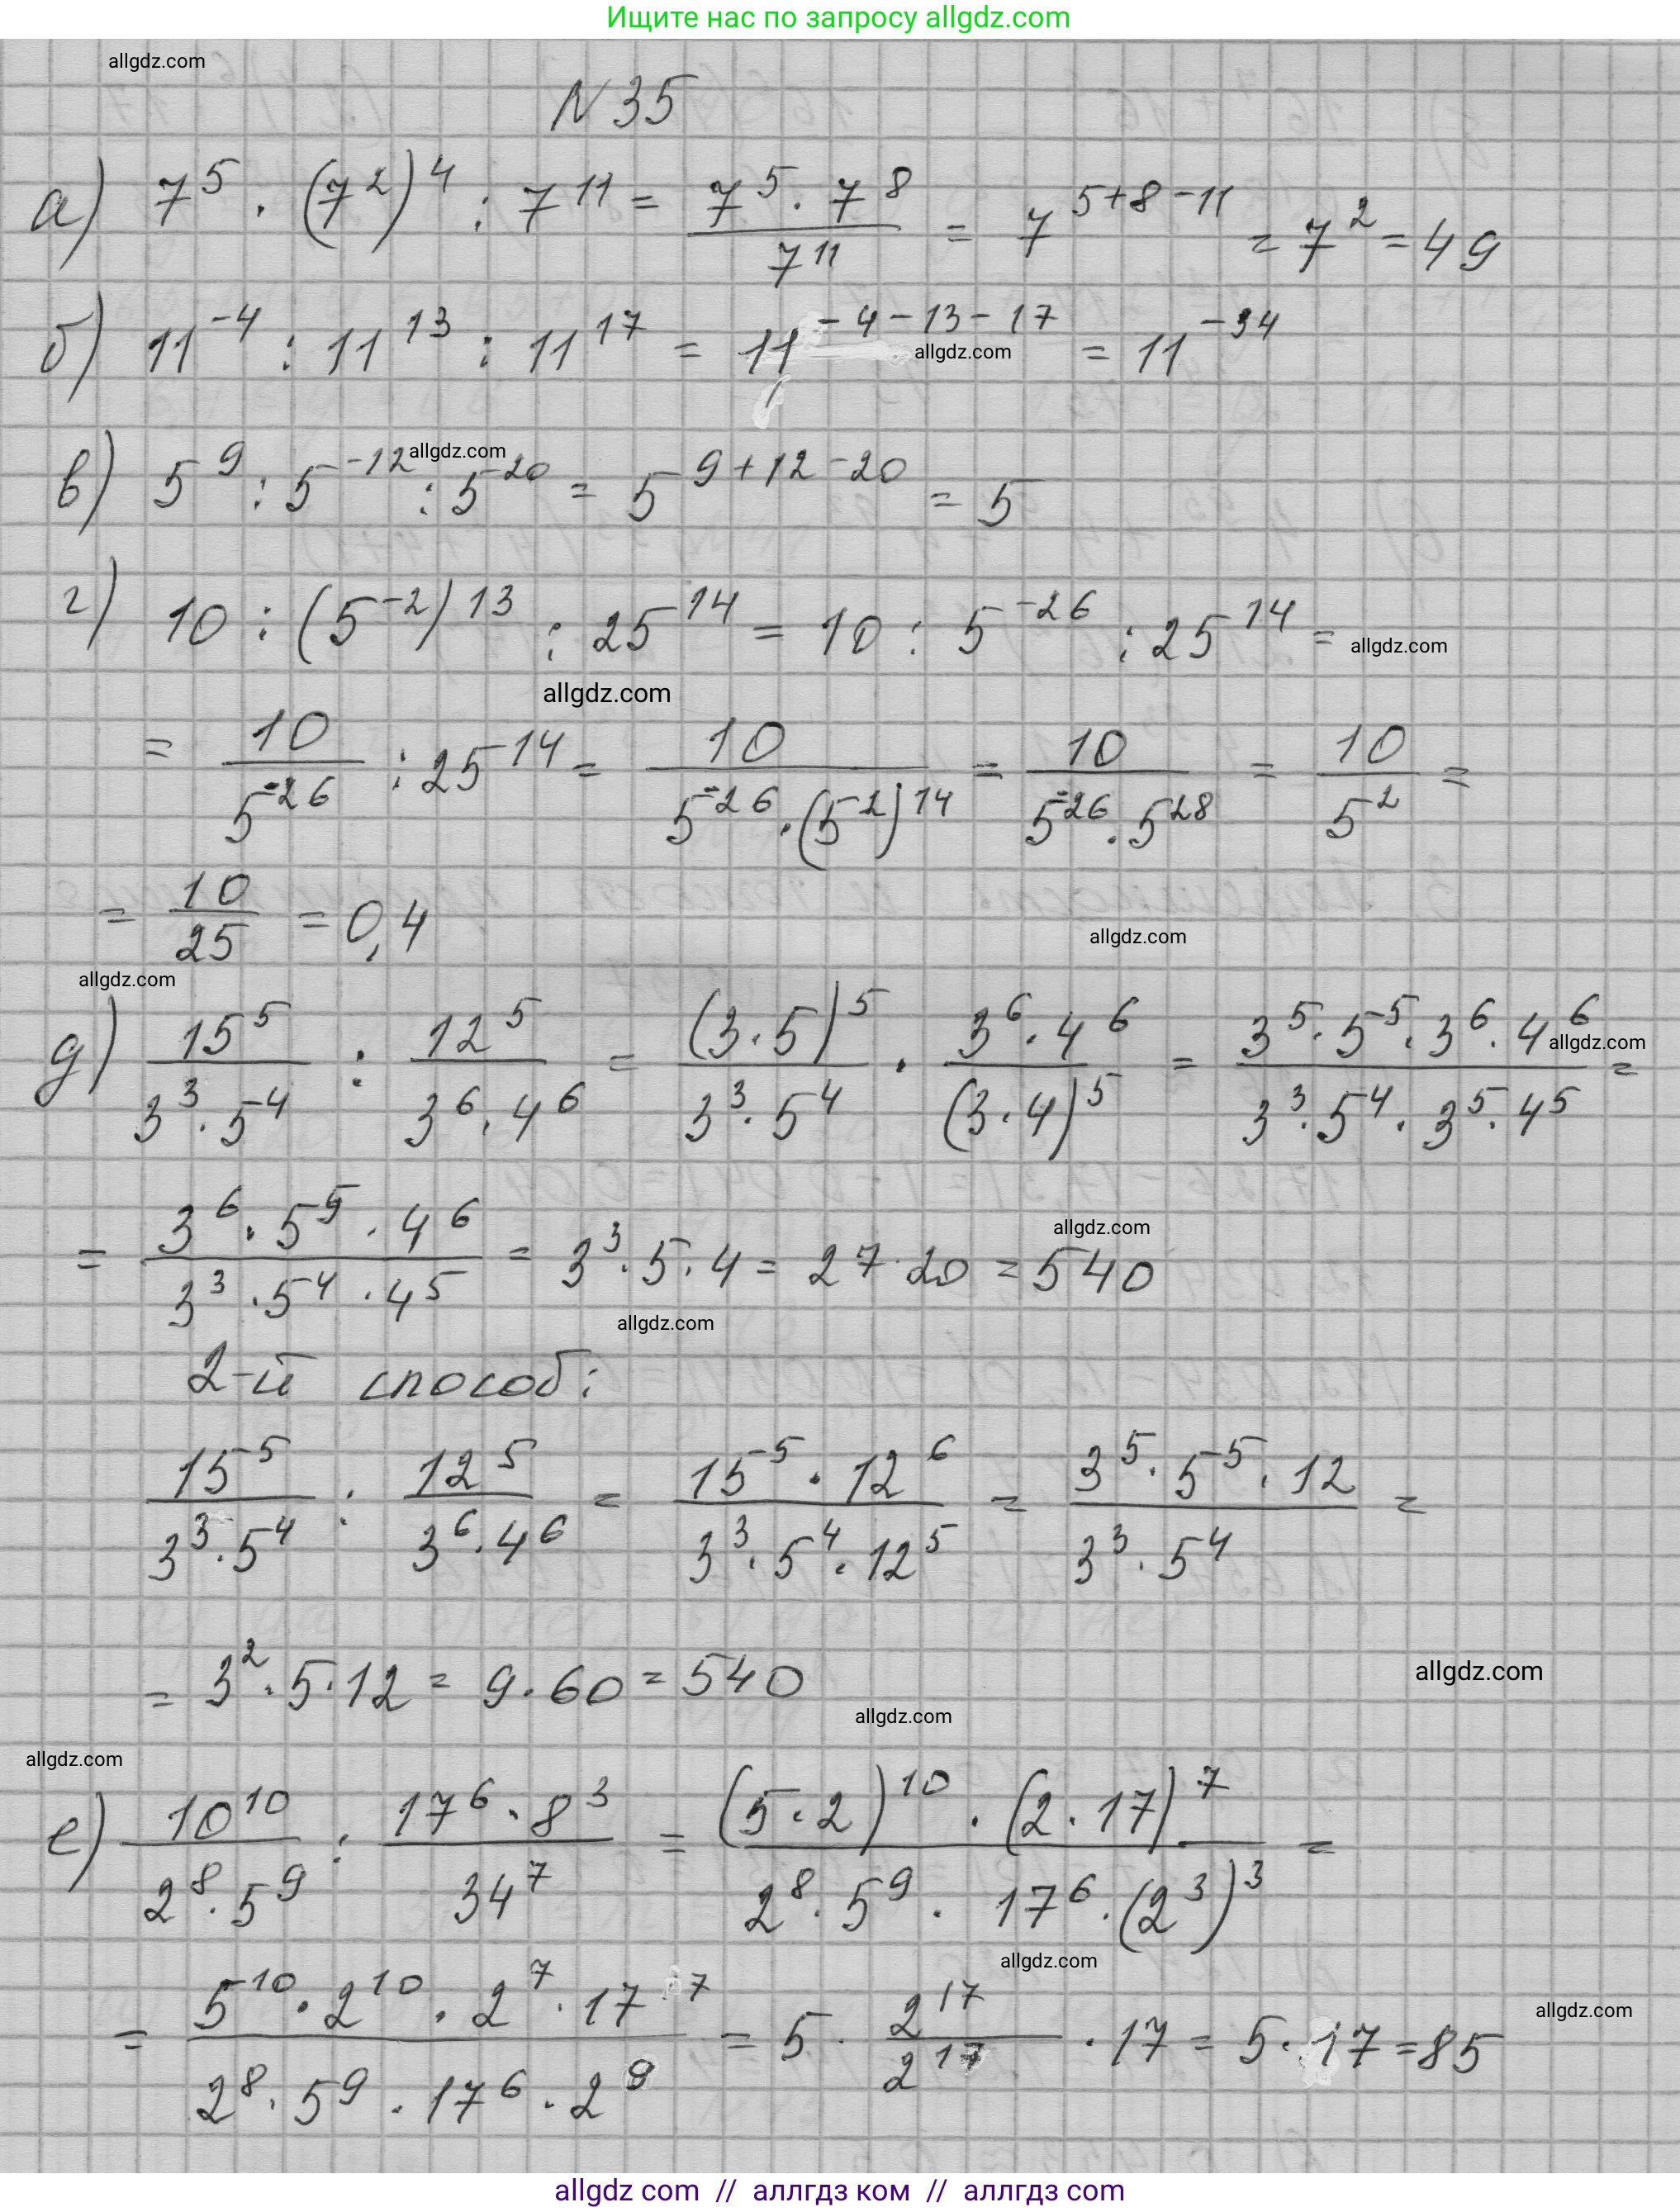 Ищите нас по запросу allgdz.com
allgdz.com
N 35
а) 7^5 · (7^2)^4 : 7^11 = (7^5 · 7^8)/7^11 = 7^(5+8-11) = 7^2 = 49
б) 11^-4 : 11^13 : 11^17 = 11^(-4-13-17) = 11^-34
allgdz.com
в) 5^9 : 5^-12 : 5^20 = 5^(9+12-20) = 5
allgdz.com
г) 10 : (5^-2)^13 : 25^14 = 10 : 5^-26 : 25^14 =
allgdz.com
allgdz.com
= 10/5^-26 : 25^14 = 10/(5^-26 · (5^2)^14) = 10/(5^-26 · 5^28) = 10/5^2 =
= 10/25 = 0,4
allgdz.com
allgdz.com
д) 15^5/(3^3 · 5^4) : 12^5/(3^6 · 4^6) = (3·5)^5/(3^3 · 5^4) · (3^6 · 4^6)/(3·4)^5 = (3^5 · 5^5 · 3^6 · 4^6)/(3^3 · 5^4 · 3^5 · 4^5) =
allgdz.com
= (3^6 · 5^5 · 4^6)/(3^3 · 5^4 · 4^5) = 3^3 · 5 · 4 = 27 · 20 = 540
allgdz.com
allgdz.com
2-й способ:
15^5/(3^3 · 5^4) : 12^5/(3^6 · 4^6) = (15^5 · 12^6)/(3^3 · 5^4 · 12^5) = (3^5 · 5^5 · 12)/(3^3 · 5^4) =
= 3^2 · 5 · 12 = 9 · 60 = 540
allgdz.com
allgdz.com
allgdz.com
е) 10^10/(2^8 · 5^9) : (17^6 · 8^3)/34^7 = ((5·2)^10 · (2·17)^7)/(2^8 · 5^9 · 17^6 · (2^3)^3) =
allgdz.com
= (5^10 · 2^10 · 2^7 · 17^7)/(2^8 · 5^9 · 17^6 · 2^9) = 5 · 2^17/2^17 · 17 = 5 · 17 = 85
allgdz.com
allgdz com // аллгдз ком // аллгдз com